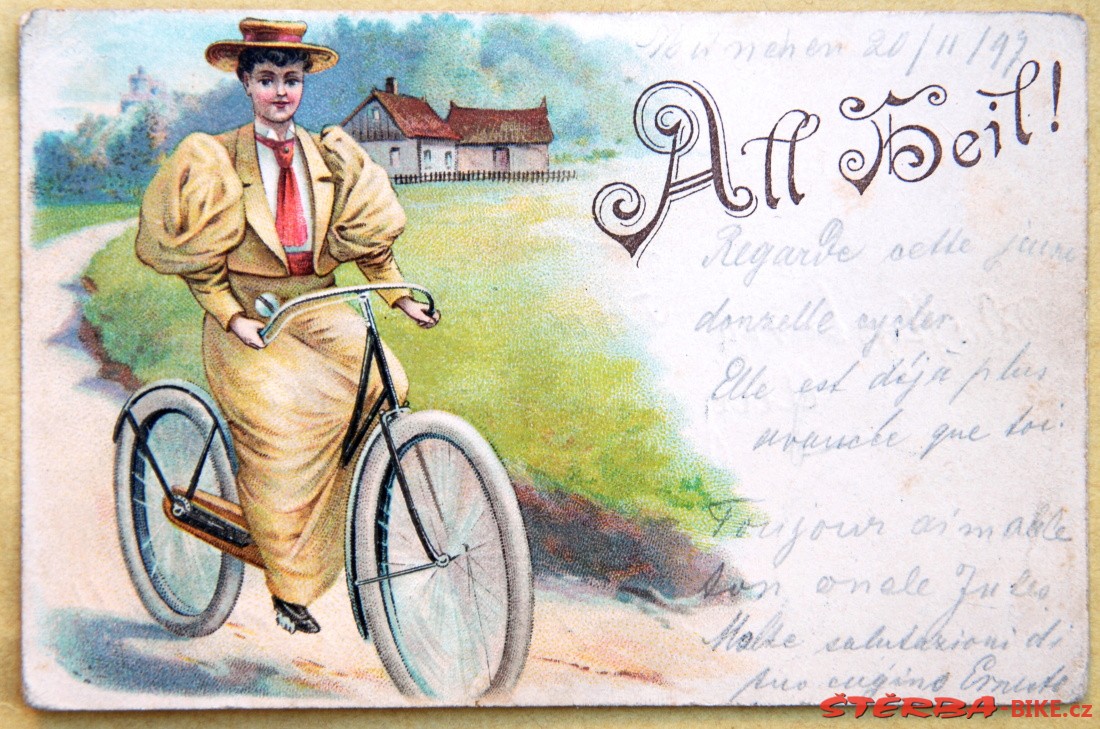 München 20/11/97
All Heil!
Regarde cette jeune
donzelle cycler.
Elle est déjà plus
avancée que toi.
Toujour aimable
ton oncle Jules.
Molte salutazioni di
tuo cugino Ernesto
ŠTĚRBA-BIKE.cz